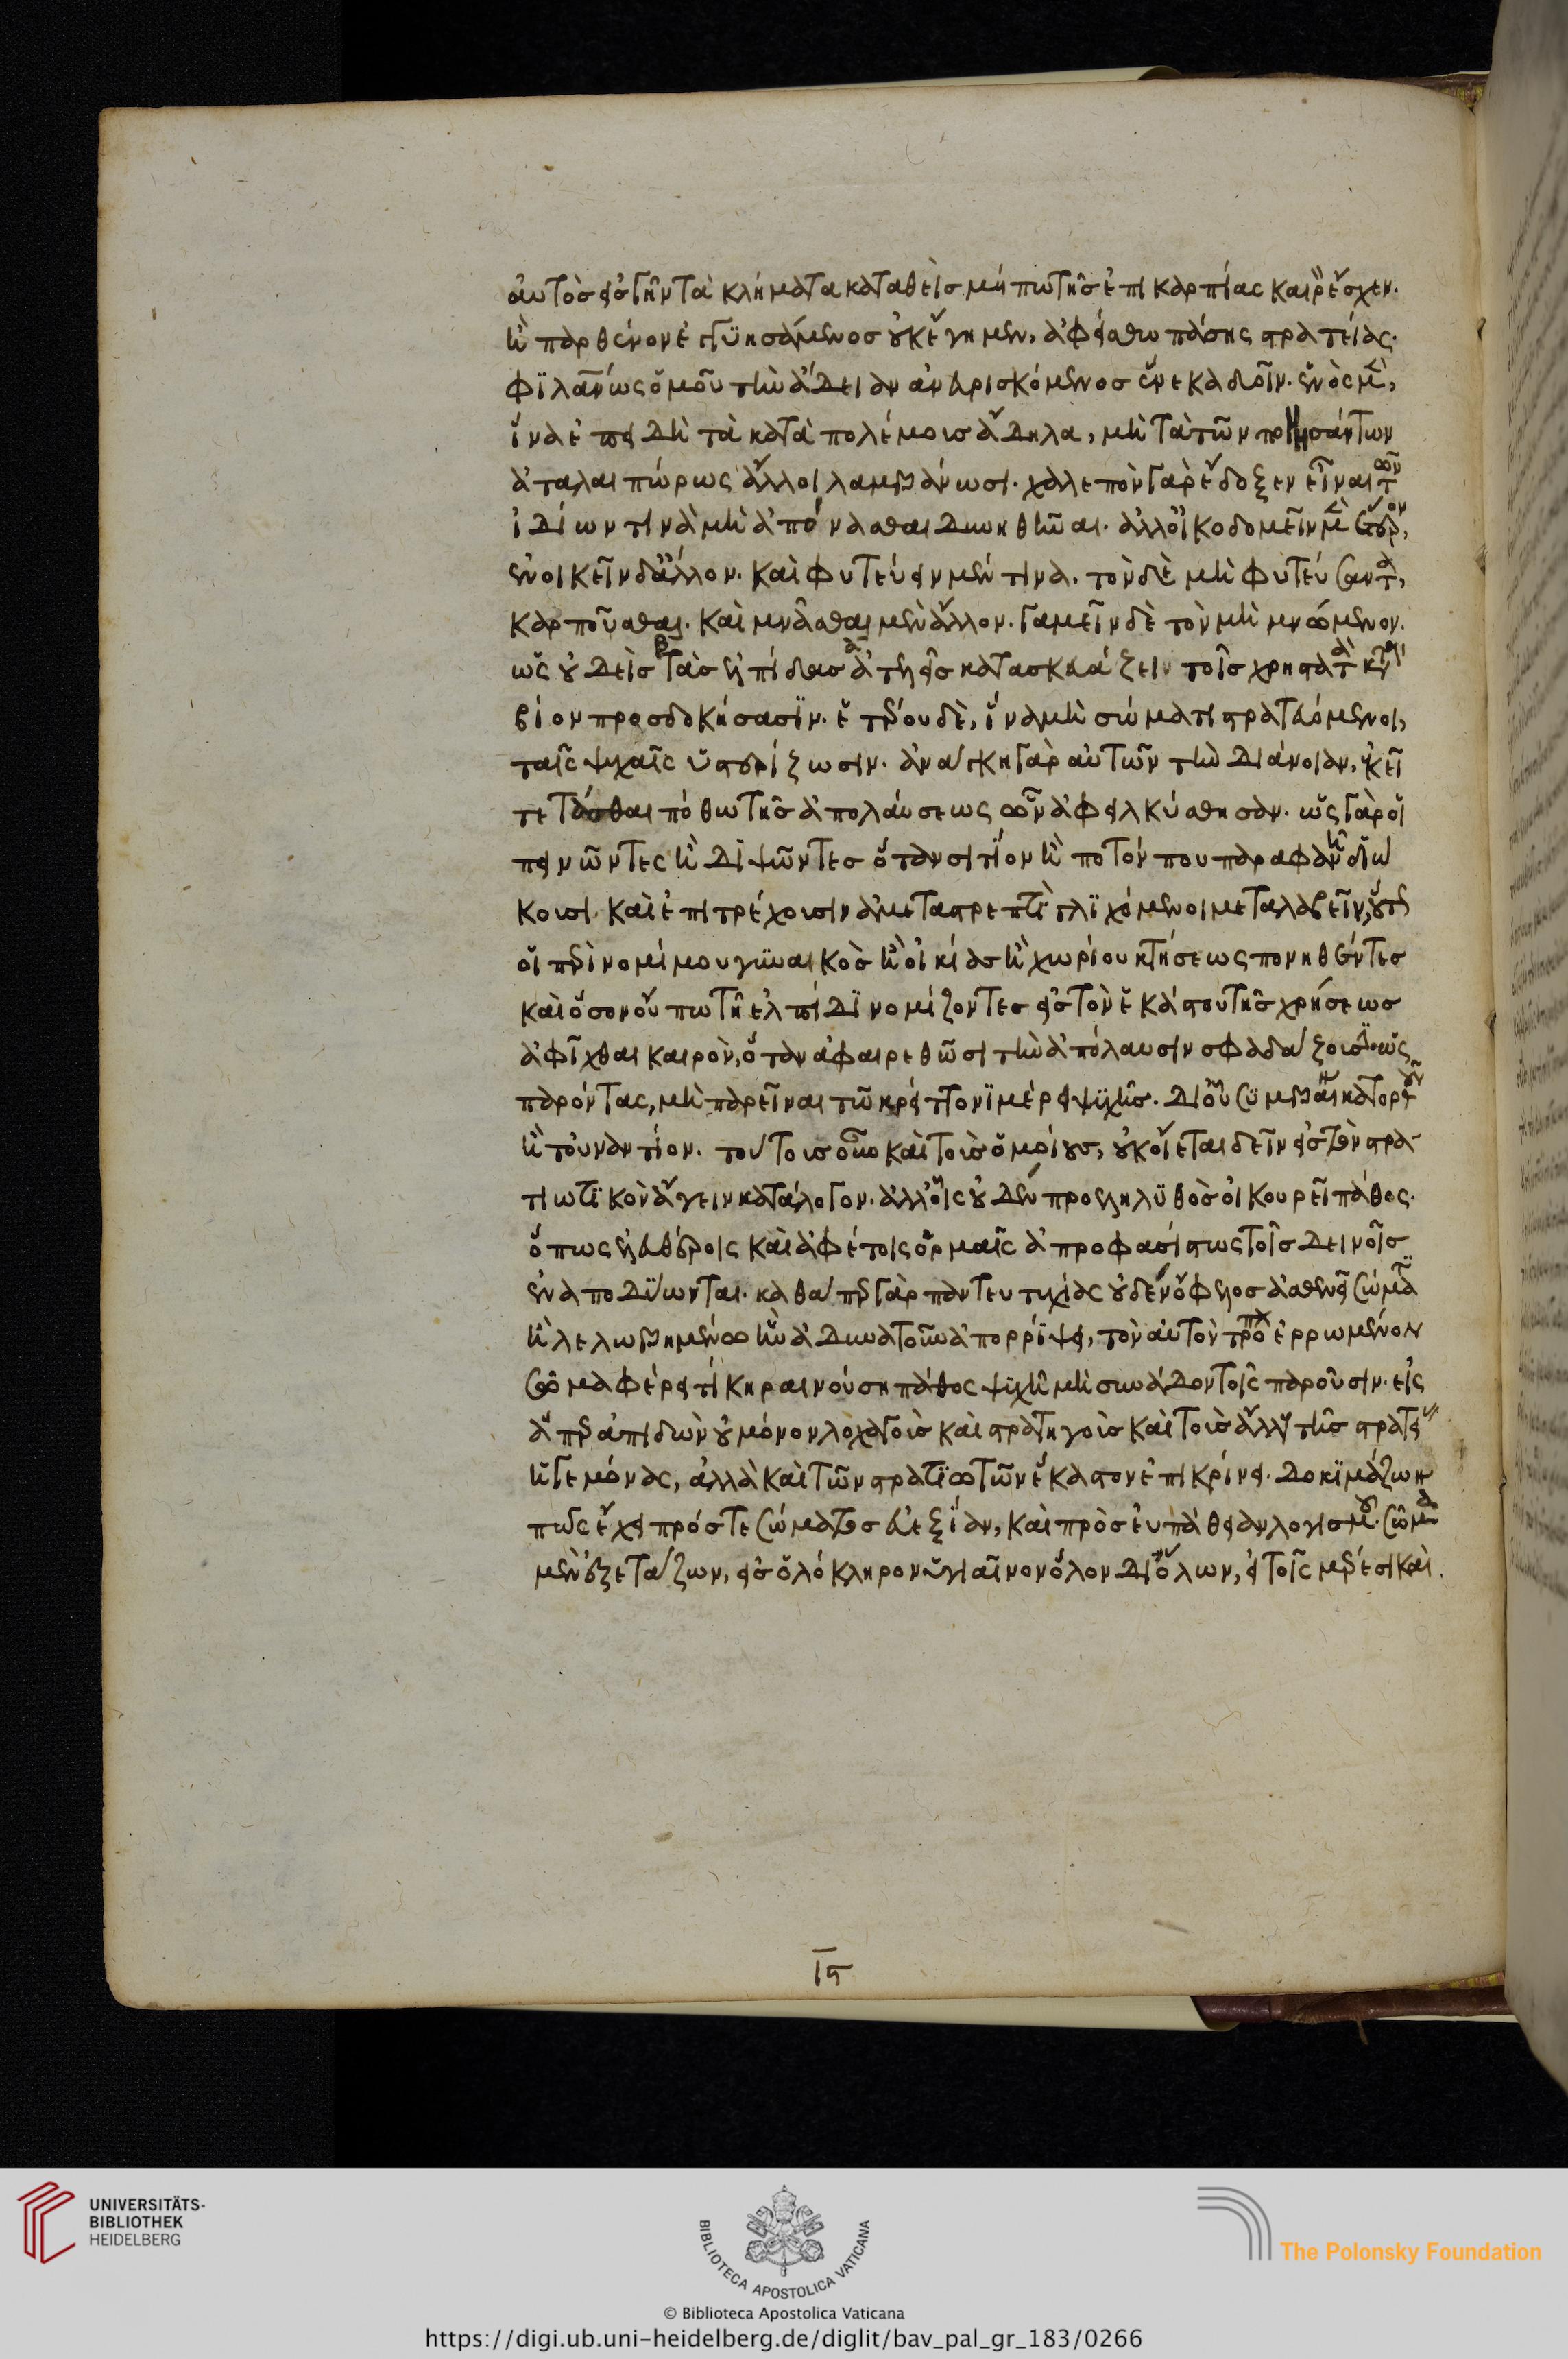 αὐτὸς εἰς γῆν τὰ κλήματα καταθεὶς μήπω τῆς ἐπικαρπίας καιρὸν ἔσχεν.
ἢ παρθένον ἐγγυησάμενος οὐκ ἔγημεν, ἀφείσθω πάσης στρατείας.
φιλανθρώπως ὁμοῦ τὴν ἄδειαν ἀνευρισκόμενος ἕνεκα δυοῖν. ἑνὸς μὲν,
ἵνα ἐπειδὴ τὰ κατὰ πολέμους ἄδηλα, μὴ τὰ τῶν πονησάντων
ἀταλαιπώρως ἄλλοι λαμβάνωσι. χαλεπὸν γὰρ ἔδοξεν εἶναι τῶν
ἰδίων τινὰ μὴ ἀπόνασθαι δυνηθῆναι. ἀλλ' οἰκοδομεῖν μὲν ἕτερον,
ἐνοικεῖν δ' ἄλλον. καὶ φυτεύειν μέν τινα. τὸν δὲ μὴ φυτεύσαντα,
καρποῦσθαι. καὶ μνᾶσθαι μὲν ἄλλον. γαμεῖν δὲ τὸν μὴ μνώμενον.
ὡς οὐ δεῖς τὰς ἐλπίδας ἀτελεῖς κατασκευάζειν τοῖς χρηστὰ τὰ κατὰ τὸν
βίον προσδοκήσασιν. ἑτέρου δὲ, ἵνα μὴ σώματι στρατευόμενοι,
ταῖς ψυχαῖς ὑστερίζωσιν. ἀνάγκη γὰρ αὐτῶν τὴν διάνοιαν, ἐκεῖ
τετάσθαι πόθω τῆς ἀπολαύσεως ὧν ἀφειλκύσθησαν. ὡς γὰρ οἱ
πεινῶντες ἢ διψῶντες ὅταν σιτίον ἢ ποτόν που παραφανῆ διώ
κουσι. καὶ ἐπιτρέχουσιν ἀμεταστρεπτὶ γλιχόμενοι μεταλαβεῖν, οὕτως
οἱ περὶ νομίμου γυναικὸς ἢ οἰκίας ἢ χωρίου κτήσεως πονηθέντες
καὶ ὅσον οὔπω τῆ ἐλπίδι νομίζοντες εἰς τὸν ἑκάστου τῆς χρήσεως
ἀφῖχθαι καιρὸν, ὅταν ἀφαιρεθῶσι τὴν ἀπόλαυσιν σφαδάζουσιν. ὡς
παρόντας, μὴ παρεῖναι τῶ κρείττονι μέρει ψυχῆς. δι' οὗ συμβαίνει κατορθοῦν
ἢ τοὐναντίον. τούτους οὖν καὶ τοὺς ὁμοίους, οὐκ οἴεται δεῖν εἰς τὸν στρα
τιωτικὸν ἄγειν κατάλογον. ἀλλ' οἷς οὐδὲν προεληλυθὸς οἰκουρεῖ πάθος.
ὅπως ἐλευθέροις καὶ ἀφέτοις ὁρμαῖς ἀπροφασίστως τοῖς δεινοῖς
ἐναποδύωνται. καθάπερ γὰρ παντευτυχίας οὐδὲν ὄφελος ἀσθενεῖ σώματι
ἢ λελωβημένω ἢν ἀδυνατοῦν ἀπορρίψει, τὸν αὐτὸν τρόπον ἐρρωμένον
σῶμα φθέρει τι κηραινούση πάθος ψυχῆ μὴ συνάδον τοῖς παροῦσιν. εἰς
ἅπερ ἀπιδὼν οὐ μόνον λοχαγοὺς καὶ στρατηγοὺς καὶ τοὺς ἄλλους τῆς στρατείας
ἡγεμόνας, ἀλλὰ καὶ τῶν στρατιωτῶν ἕκαστον ἐπικρίνει. δοκιμάζων
πῶς ἔχει πρός τε σώματος εὐεξίαν, καὶ πρὸς εὐπάθειαν λογισμοῦ. σῶμα
μὲν ἐξετάζων, εἰς ὁλόκληρον ὑγιαῖνον ὅλον δι' ὅλων, εἰ τοῖς μέρεσι καὶ
ις
UNIVERSITÄTS-
BIBLIOTHEK
HEIDELBERG
BIBLIOTECA APOSTOLICA VATICANA
The Polonsky Foundation
© Biblioteca Apostolica Vaticana
https://digi.ub.uni-heidelberg.de/diglit/bav_pal_gr_183/0266